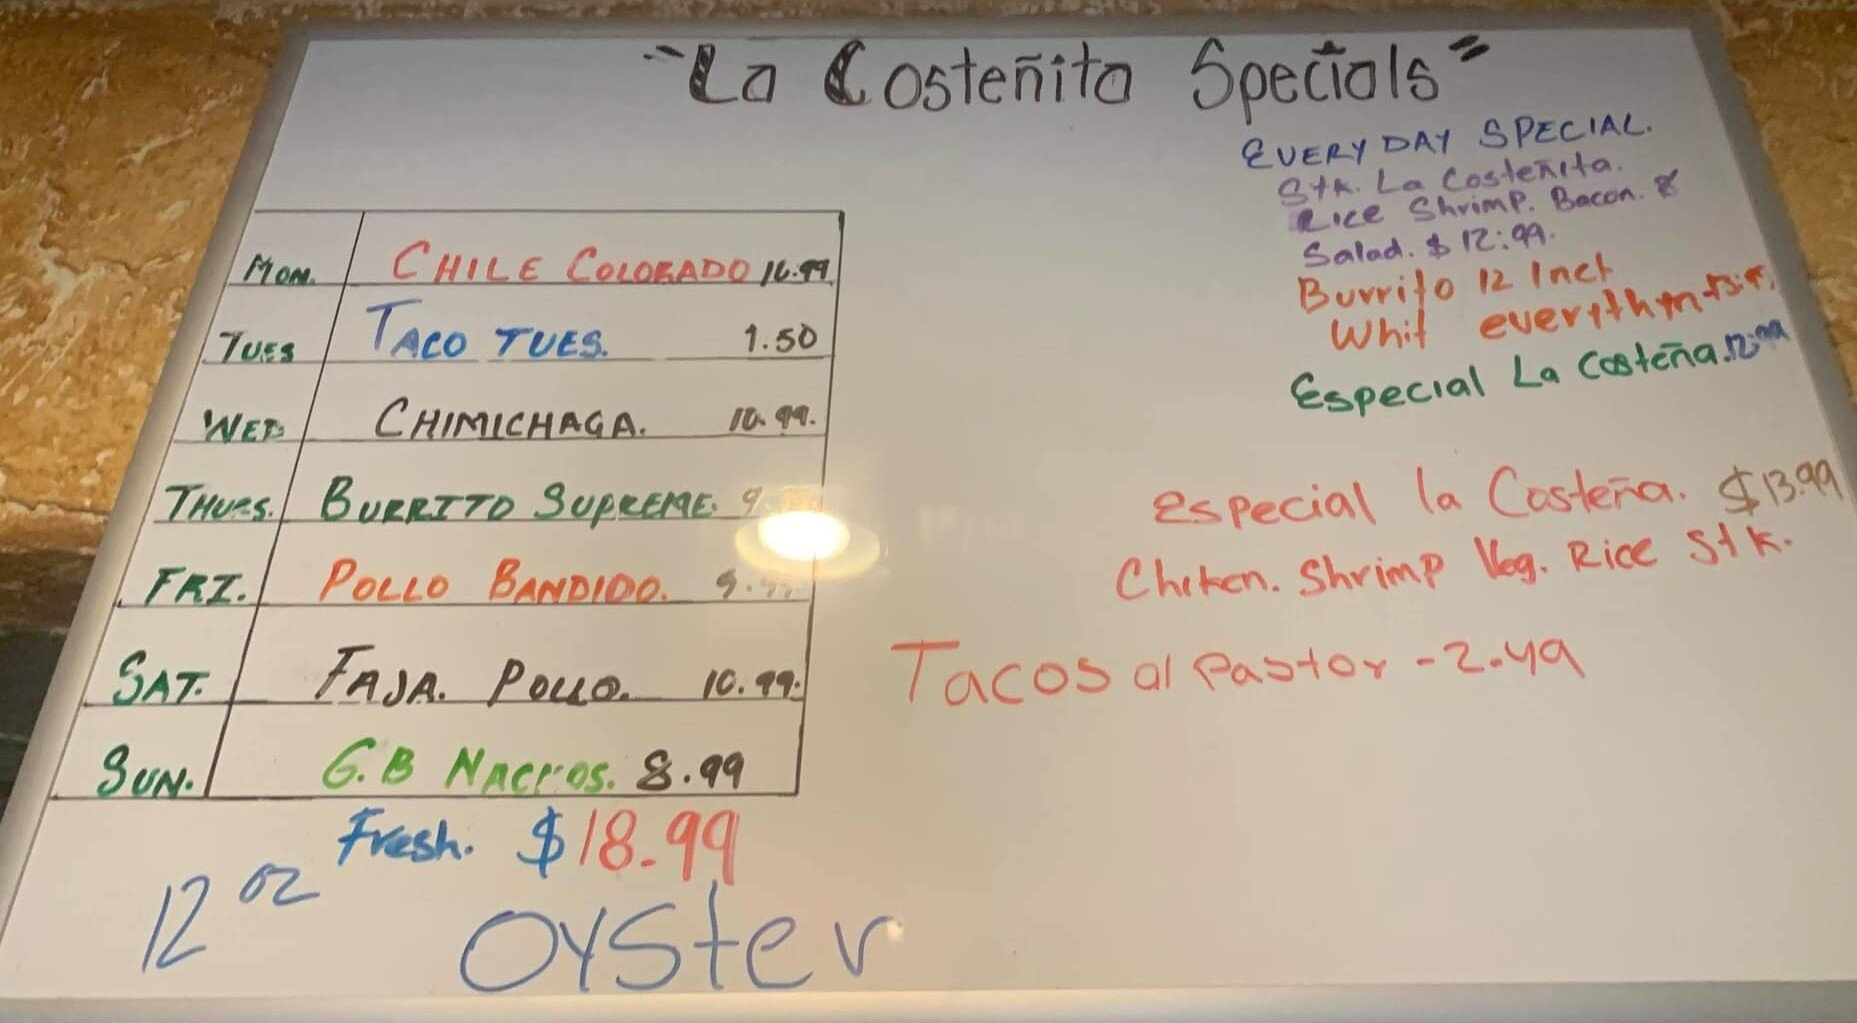 "La Costeñita Specials"
EVERYDAY SPECIAL.
Stk. La Costeñita.
Rice Shrimp. Bacon. &
Salad. $12:99.
Burrito 12 Inch
Whit everythin
Especial La Costeña. 12.99
MON. CHILE COLORADO
TUES TACO TUES. 1.50
WED. CHIMICHAGA. 10.99.
THURS. BURRITO SUPREME. 9.
FRI. POLLO BANDIDO. 9.
SAT. FAJA. POLLO. 10.99.
SUN. G.B NACHOS. 8.99
Especial la Costeña. $13.99
Chiken. Shrimp Veg. Rice Stk.
Tacos al Pastor - 2.49
Fresh. $18.99
12 oz OYSter